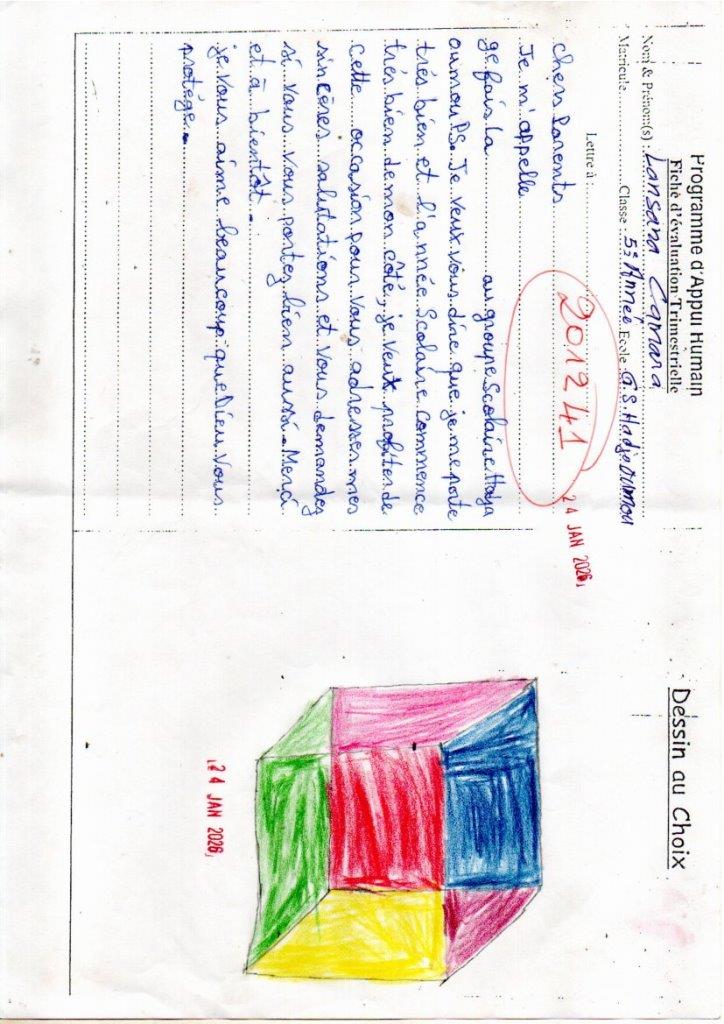 Programme d'Appui Humain
Fiche d'évaluation Trimestrielle
Nom & Prénom(s) : Lansana Camara
Matricule Classe : 5è Année Ecole G.S. Hadja OUMOU
Lettre à :
201241
24 JAN 2026
chers Parents
Je m'appelle
ge fais la au groupe Scolaire Hadja
oumou P.S. Je veux vous dire que je me porte
très bien et l'année scolaire commence
très bien de mon côté, je veux profiter de
cette occasion pour vous adresser mes
sincères salutations et vous demandez
si vous vous portez bien aussi. Merci
et à bientôt.
je vous aime beaucoup que Dieu vous
protège.
Dessin au Choix
24 JAN 2026